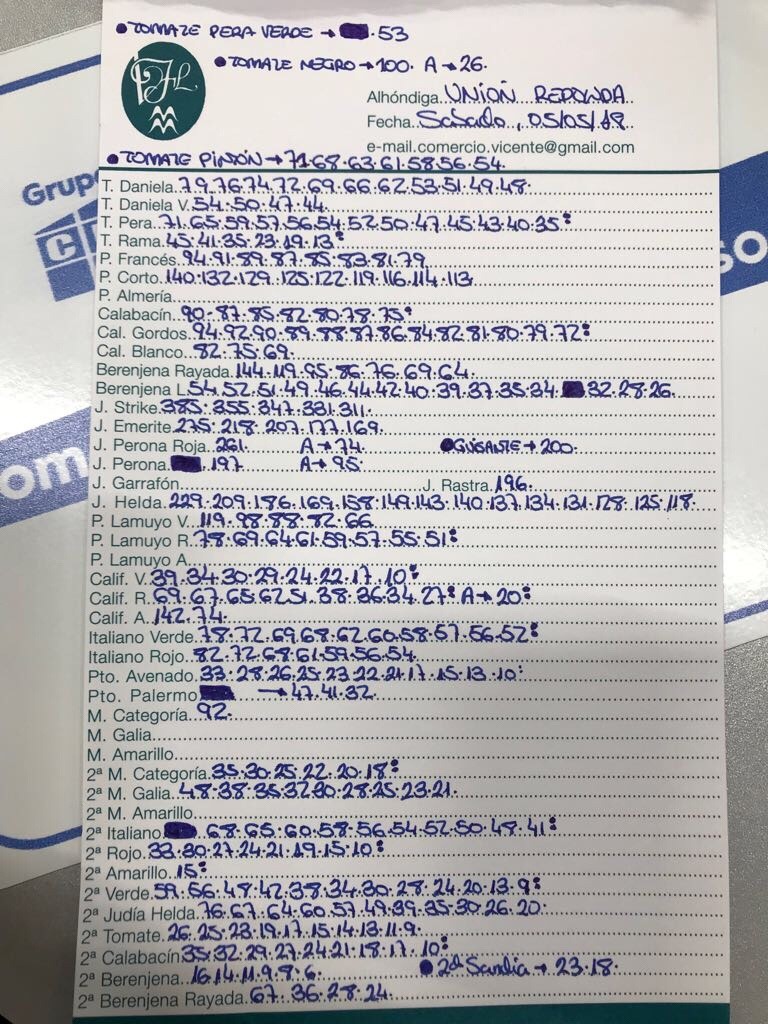 • TOMATE PERA VERDE → 53
• TOMATE NEGRO → 100. A → 26.
Alhóndiga. UNION REDONDA
Fecha. Sábado, 05/05/18.
e-mail.comercio.vicente@gmail.com
• TOMATE PINTÓN → 71.68.63.61.58.56.54.
Grup
T. Daniela. 79.76.74.72.69.66.62.53.51.49.48.
T. Daniela V. 54.50.47.44.
T. Pera. 71.65.59.57.56.54.52.50.47.45.43.40.35:
T. Rama. 45.41.35.23.19.13:
P. Francés. 94.91.89.87.85.83.81.79
P. Corto. 140.132.129.125.122.119.116.114.113
P. Almería.
Calabacín. 90.87.85.82.80.78.75:
Cal. Gordos. 94.92.90.89.88.87.86.84.82.81.80.79.72:
Cal. Blanco. 82.75.69.
Berenjena Rayada. 144.119.95.86.76.69.64.
Berenjena L. 54.52.51.49.46.44.42.40.39.37.35.34. 32.28.26.
J. Strike. 385.355.347.331.311.
J. Emerite. 275.218.207.177.169.
J. Perona Roja. 261. A → 74. • GUISANTE → 200.
J. Perona. 197 A → 95.
J. Garrafón J. Rastra. 196.
J. Helda. 229.209.186.169.158.149.143.140.137.134.131.128.125.118.
P. Lamuyo V. 119.98.88.82.66
P. Lamuyo R. 78.69.64.61.59.57.55.51:
P. Lamuyo A.
Calif. V. 39.34.30.29.24.22.17.10:
Calif. R. 69.67.65.62.51.38.36.34.27: A → 20:
Calif. A. 142.74.
Italiano Verde. 78.72.69.68.62.60.58.57.56.52:
Italiano Rojo. 82.72.68.61.59.56.54.
Pto. Avenado. 33.28.26.25.23.22.21.17.15.13.10:
Pto. Palermo → 47.41.32.
M. Categoría. 92.
M. Galia
M. Amarillo
2ª M. Categoría. 35.30.25.22.20.18:
2ª M. Galia. 48.38.35.32.30.28.25.23.21.
2ª M. Amarillo
2ª Italiano. 68.65.60.58.56.54.52.50.48.41:
2ª Rojo. 33.30.27.24.21.19.15.10:
2ª Amarillo. 15:
2ª Verde. 59.56.48.42.38.34.30.28.24.20.13.9:
2ª Judía Helda. 76.67.64.60.57.49.39.35.30.26.20:
2ª Tomate. 26.25.23.19.17.15.14.13.11.9.
2ª Calabacín. 35.32.29.27.24.21.18.17.10:
2ª Berenjena. 16.14.11.9.8.6. • 2ª Sandia → 23.18.
2ª Berenjena Rayada. 67.36.28.24.